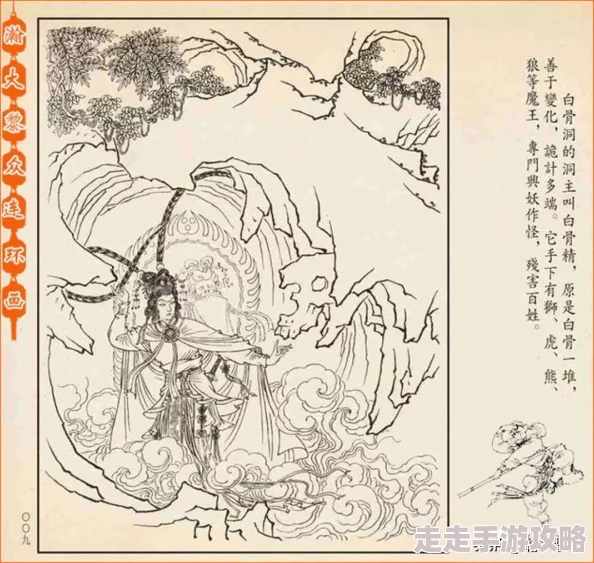 瀚大黎众连环画
白骨洞的洞主叫白骨精，原是白骨一堆，
善于變化，詭計多端。它手下有獅、虎、熊、
狼等魔王，專門興妖作怪，殘害百姓。
〇〇九
走走手游攻略